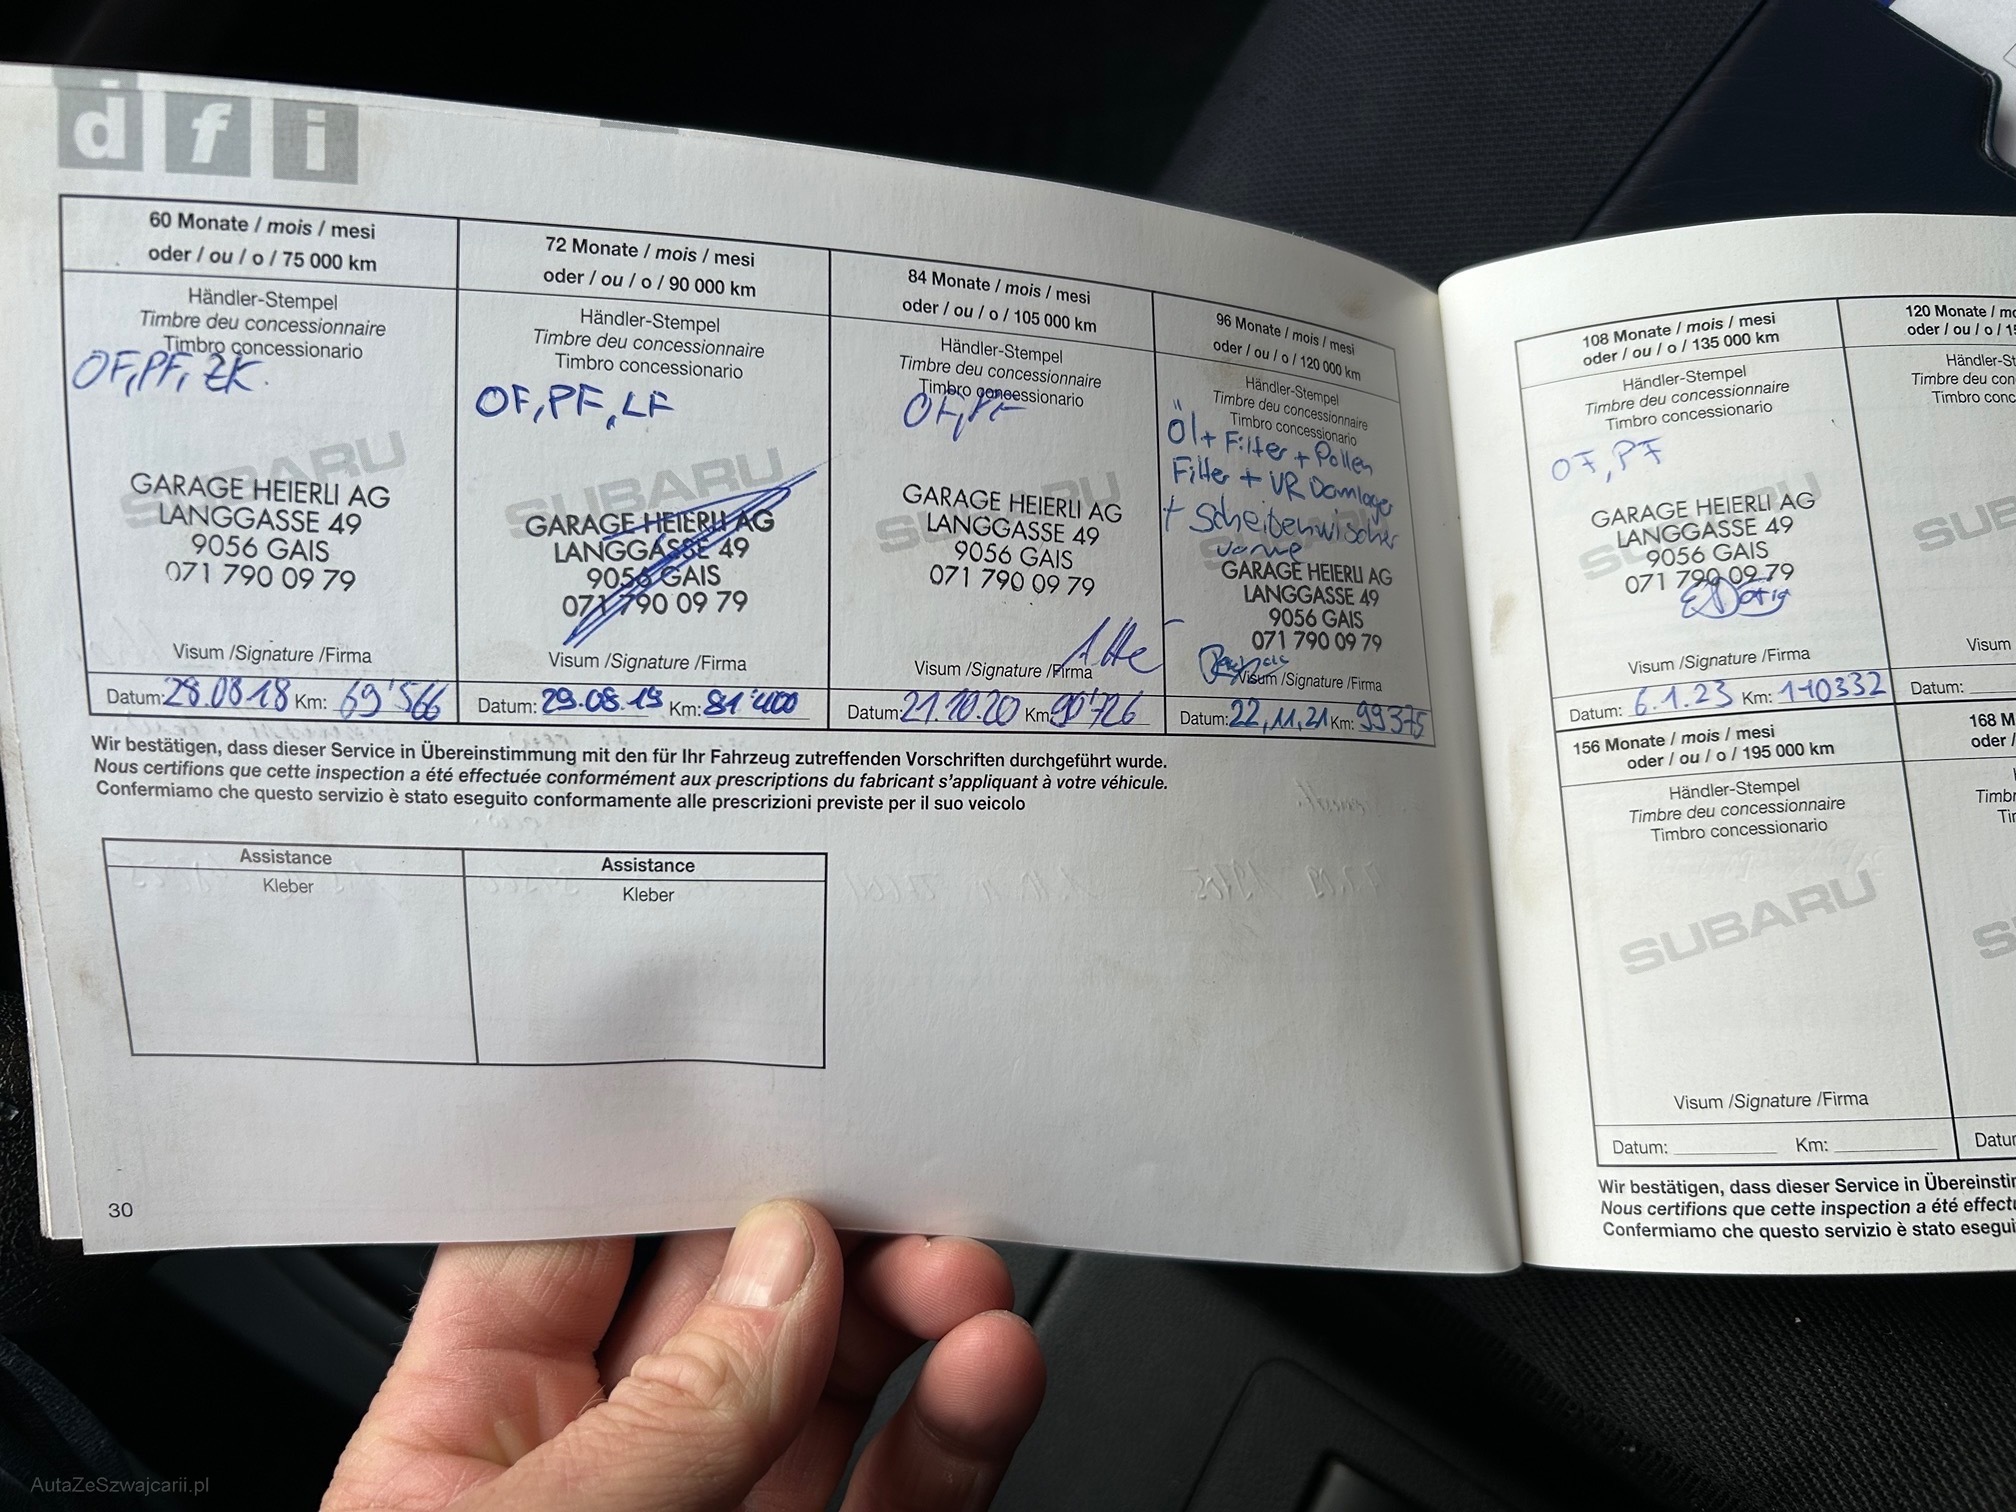 d f i
60 Monate / mois / mesi
oder / ou / o / 75 000 km
Händler-Stempel
Timbre deu concessionnaire
Timbro concessionario
OF, PF, ZK.
SUBARU
GARAGE HEIERLI AG
LANGGASSE 49
9056 GAIS
071 790 09 79
Visum /Signature /Firma
Datum: 28.08.18 Km: 69'566
72 Monate / mois / mesi
oder / ou / o / 90 000 km
Händler-Stempel
Timbre deu concessionnaire
Timbro concessionario
OF, PF, LF
SUBARU
GARAGE HEIERLI AG
LANGGASSE 49
9056 GAIS
071 790 09 79
Visum /Signature /Firma
Datum: 29.08.19 Km: 81'400
84 Monate / mois / mesi
oder / ou / o / 105 000 km
Händler-Stempel
Timbre deu concessionnaire
Timbro concessionario
OF, PF
SUBARU
GARAGE HEIERLI AG
LANGGASSE 49
9056 GAIS
071 790 09 79
Visum /Signature /Firma
Datum: 21.10.20 Km: 90'726
96 Monate / mois / mesi
oder / ou / o / 120 000 km
Händler-Stempel
Timbre deu concessionnaire
Timbro concessionario
Öl + Filter + Pollen
Filter + VR Domlager
+ Scheibenwischer
vorne
SUBARU
GARAGE HEIERLI AG
LANGGASSE 49
9056 GAIS
071 790 09 79
Visum /Signature /Firma
Datum: 22.11.21 Km: 99375
Wir bestätigen, dass dieser Service in Übereinstimmung mit den für Ihr Fahrzeug zutreffenden Vorschriften durchgeführt wurde.
Nous certifions que cette inspection a été effectuée conformément aux prescriptions du fabricant s'appliquant à votre véhicule.
Confermiamo che questo servizio è stato eseguito conformamente alle prescrizioni previste per il suo veicolo
Assistance
Kleber
Assistance
Kleber
30
108 Monate / mois / mesi
oder / ou / o / 135 000 km
Händler-Stempel
Timbre deu concessionnaire
Timbro concessionario
OF, PF
SUBARU
GARAGE HEIERLI AG
LANGGASSE 49
9056 GAIS
071 790 09 79
Visum /Signature /Firma
Datum: 6.1.23 Km: 110332
120 Monate / mo
oder / ou / o / 15
Händler-St
Timbre deu con
Timbro conc
SUB
Visum
Datum:
156 Monate / mois / mesi
oder / ou / o / 195 000 km
Händler-Stempel
Timbre deu concessionnaire
Timbro concessionario
SUBARU
Visum /Signature /Firma
Datum: Km:
168 M
oder /
Timbr
Tir
S
Datu
Wir bestätigen, dass dieser Service in Übereinstin
Nous certifions que cette inspection a été effectu
Confermiamo che questo servizio è stato esegui
AutaZeSzwajcarii.pl